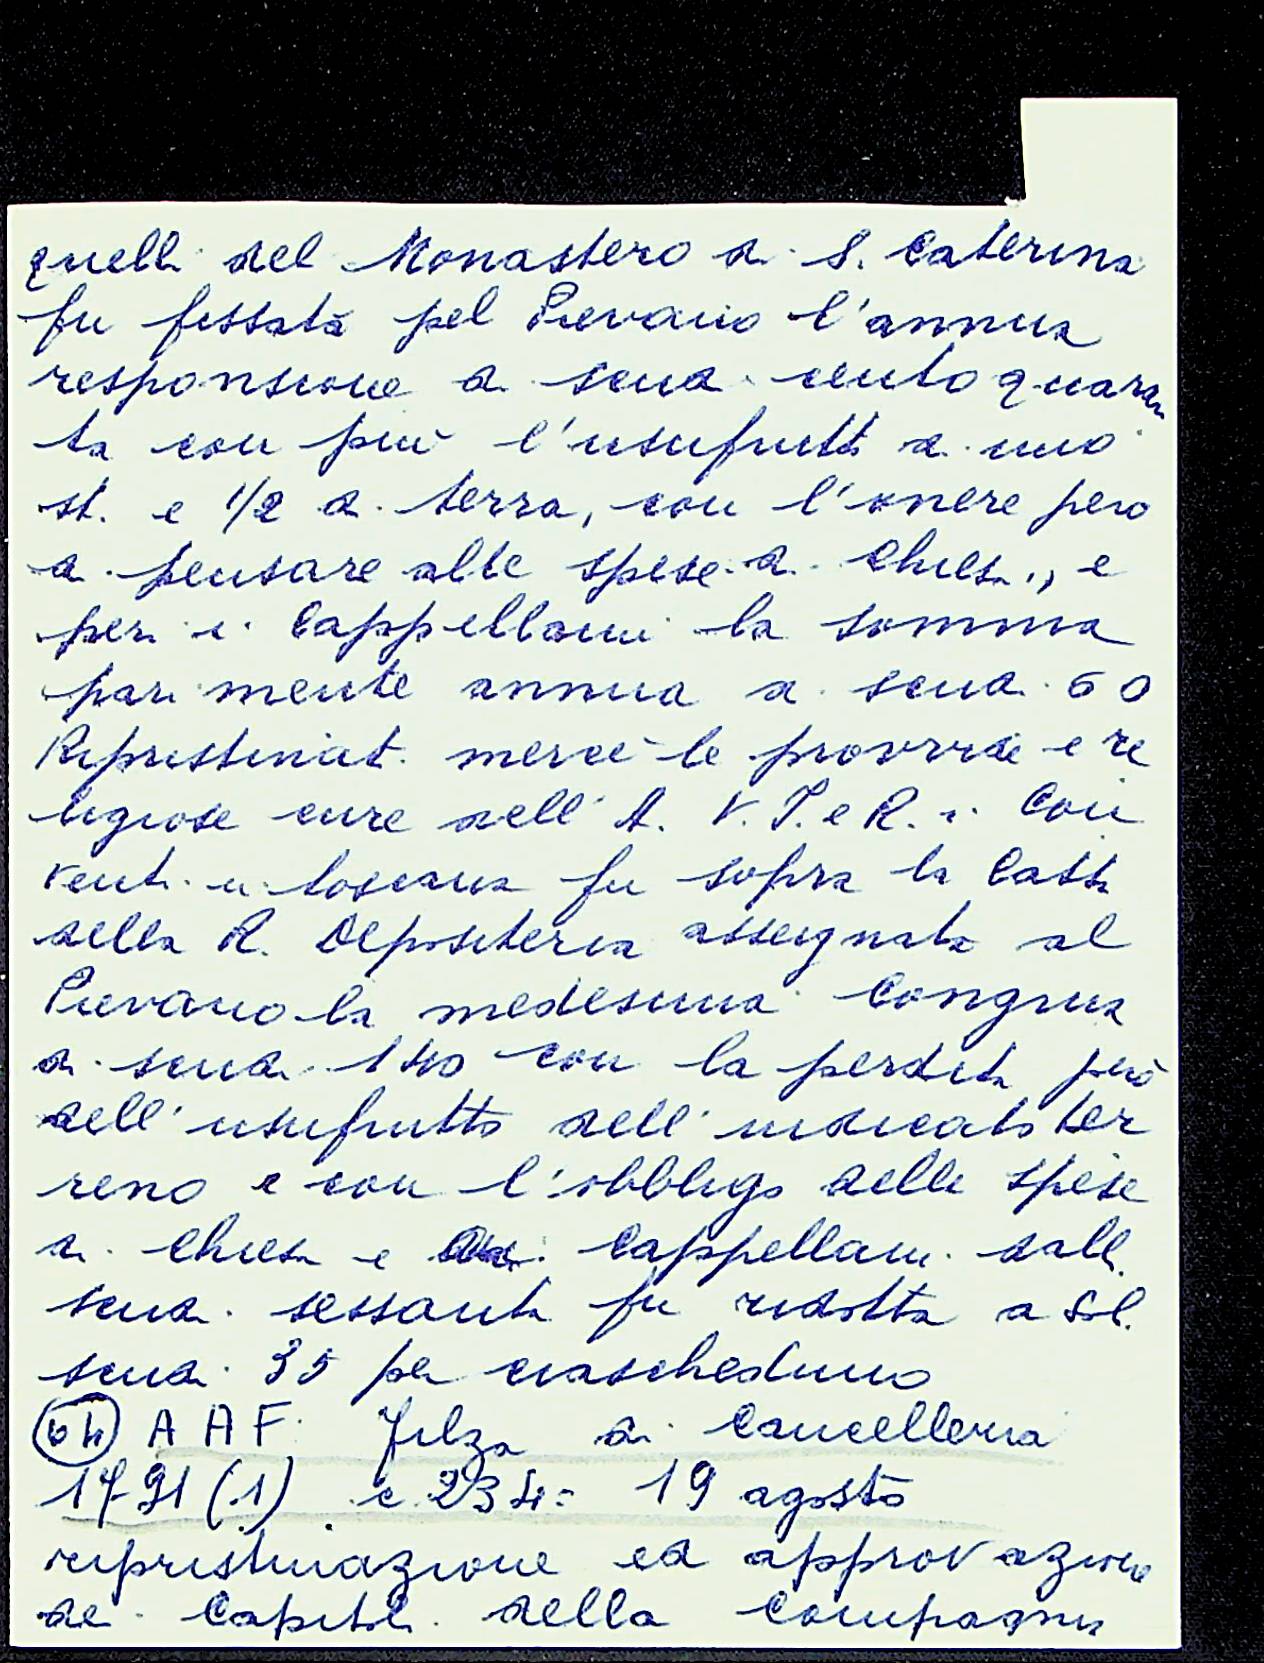 quelli del Monastero di S. Caterina
fu fissata pel Pievano l'annua
responsione di scudi cento quaran
ta con più l'usufrutto di uno
st. e 1/2 di terra, con l'onere però
di pensare alle spese di Chiesa, e
per i Cappellani la somma
parimente annua di scudi 60
Ripristinati mercè le provvide e re
ligiose cure dell' A. V. I. e R. i Con
venti in toscana fu sopra la Cassa
della R. Depositeria assegnata al
Pievano la medesima Congrua
di scudi 140 con la perdita però
dell'usufrutto dell'indicato ter
reno e con l'obbligo delle spese
di Chiesa e Cappellani dalli
scudi sessanta fu ridotta a soli
scudi 35 per ciascheduno
(64) AAF. Filza di Cancelleria
1791 (1) c. 234: 19 agosto
ripristinazione ed approvazione
dei Capitoli della Compagnia